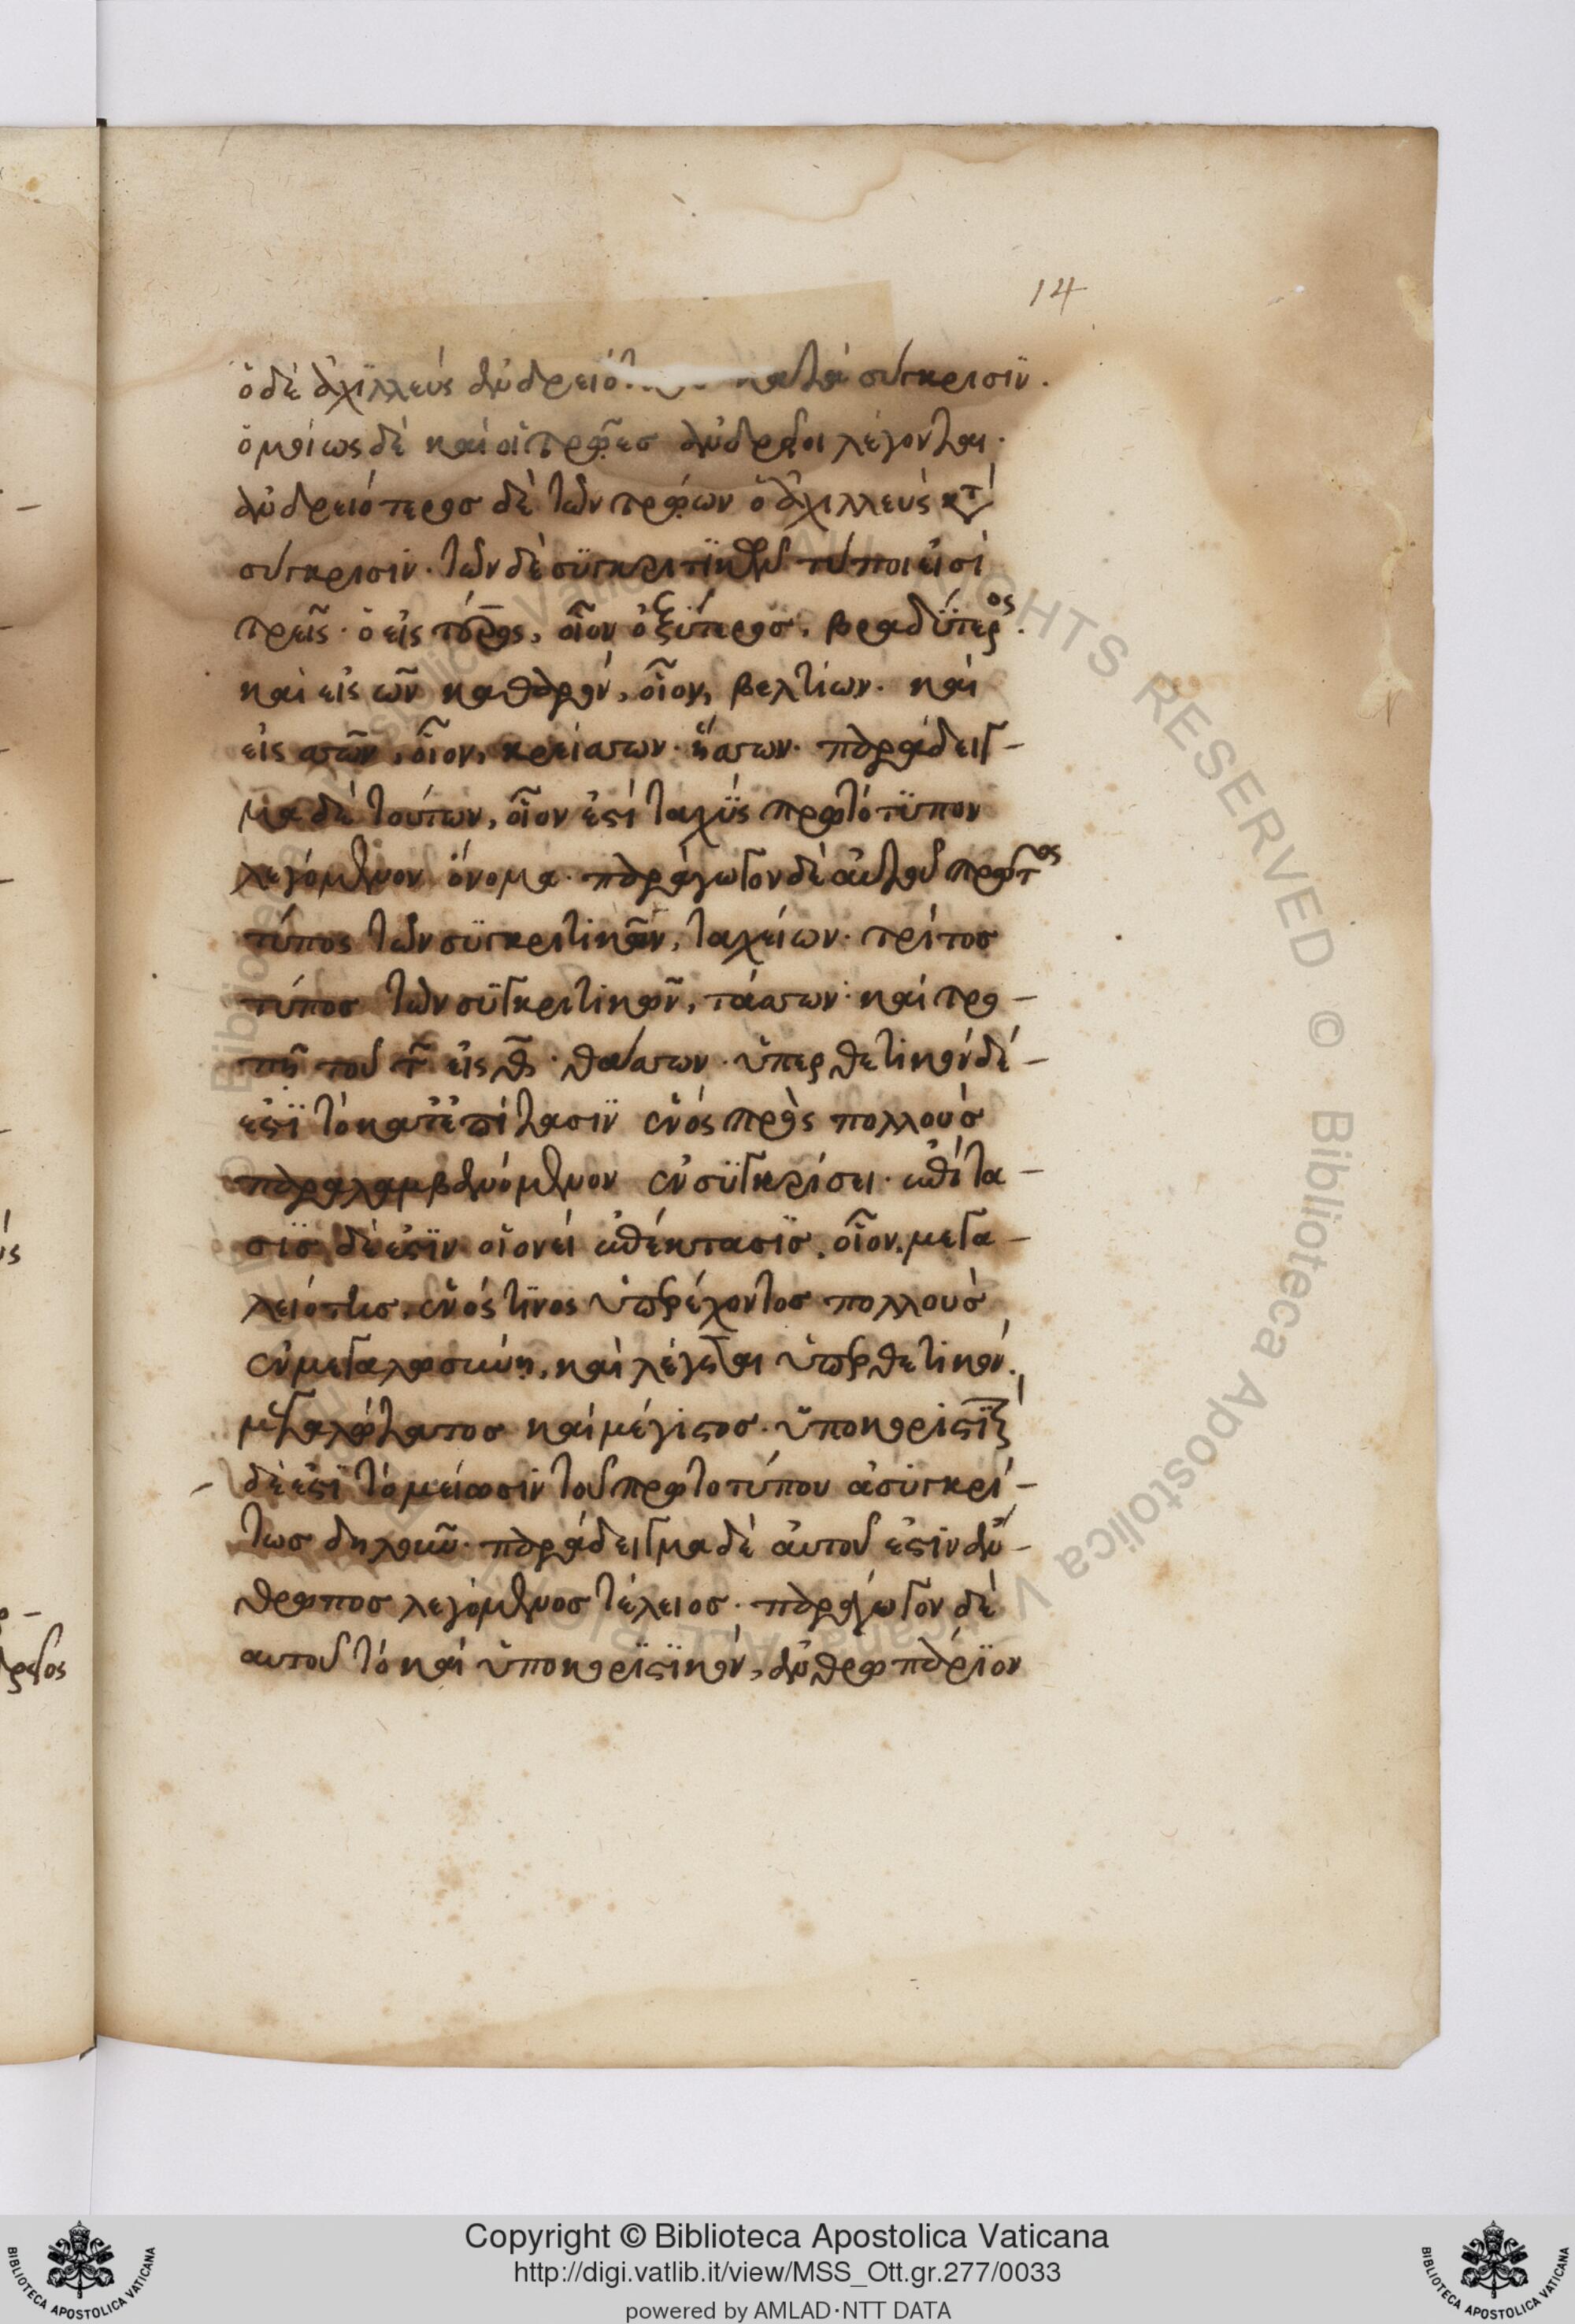 14
ὁ δὲ ἀχιλλεὺς κατὰ σύγκρισιν.
ὁμοίως δὲ καὶ οἱ τρῶες ἀνδρεῖοι λέγονται.
ἀνδρειότερος δὲ τῶν τρώων ὁ ἀχιλλεὺς κτ̀
σύγκρισιν. τῶν δὲ συγκριτικῶν τύποι εἰσὶ
τρεῖς. ὁ εἰς τερος, οἷον ὀξύτερος, βραδύτερος.
καὶ εἰς ων καθαρὸν, οἷον, βελτίων. καὶ
εἰς σσων, οἷον, κρείσσων. ἥσσων. παράδειγ-
μα δὲ τούτων, οἷον ἐστὶ ταχὺς πρωτότυπον
λεγόμενον ὄνομα. παράγωγον δὲ αὐτοῦ πρῶτος
τύπος τῶν συγκριτικῶν, ταχείων. τρίτος
τύπος τῶν συγκριτικῶν, τάσσων. καὶ τρο-
πῆ τοῦ τ εἰς θ. θάσσων. ὑπερθετικὸν δέ-
ἐστι τὸ κατ' ἐπίτασιν ἑνὸς πρὸς πολλοὺς
παραλαμβανόμενον ἐν συγκρίσει. ἐπίτα-
σις δὲ ἐστιν οἱονεὶ ἐπέκτασις. οἷον. μεγα-
λειότης. ἑνός τινος ὑπερέχοντος πολλοὺς
ἐν μεγαλωσύνη, καὶ λέγεται ὑπερθετικὸν.
μεγαλώτατος καὶ μέγιστος. ὑποκοριστικ
δὲ ἐστὶ τὸ μείωσιν τοῦ πρωτοτύπου ἀσυγκρί-
τως δηλοῦν. παράδειγμα δὲ αὐτοῦ ἐστιν ἄν-
θρωπος λεγόμενος τέλειος. παράγωγον δὲ
αὐτοῦ τὸ καὶ ὑποκοριστικὸν, ἀνθρωπάριον
Copyright © Biblioteca Apostolica Vaticana
http://digi.vatlib.it/view/MSS_Ott.gr.277/0033
powered by AMLAD·NTT DATA